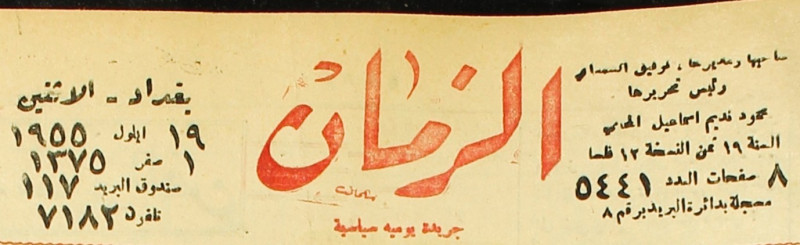 صاحبها ومديرها : توفيق السمعاني
رئيس تحريرها
محمود نديم اسماعيل المحامي
السنة ١٩ ثمن النسخة ١٢ فلسا
٨ صفحات العدد ٥٤٤١
مسجلة بدائرة البريد برقم ٨
الزمان
جريدة يومية سياسية
بغداد - الاثنين
١٩ ايلول ١٩٥٥
١ صفر ١٣٧٥
صندوق البريد ١١٧
تلفون ٧١٨٢